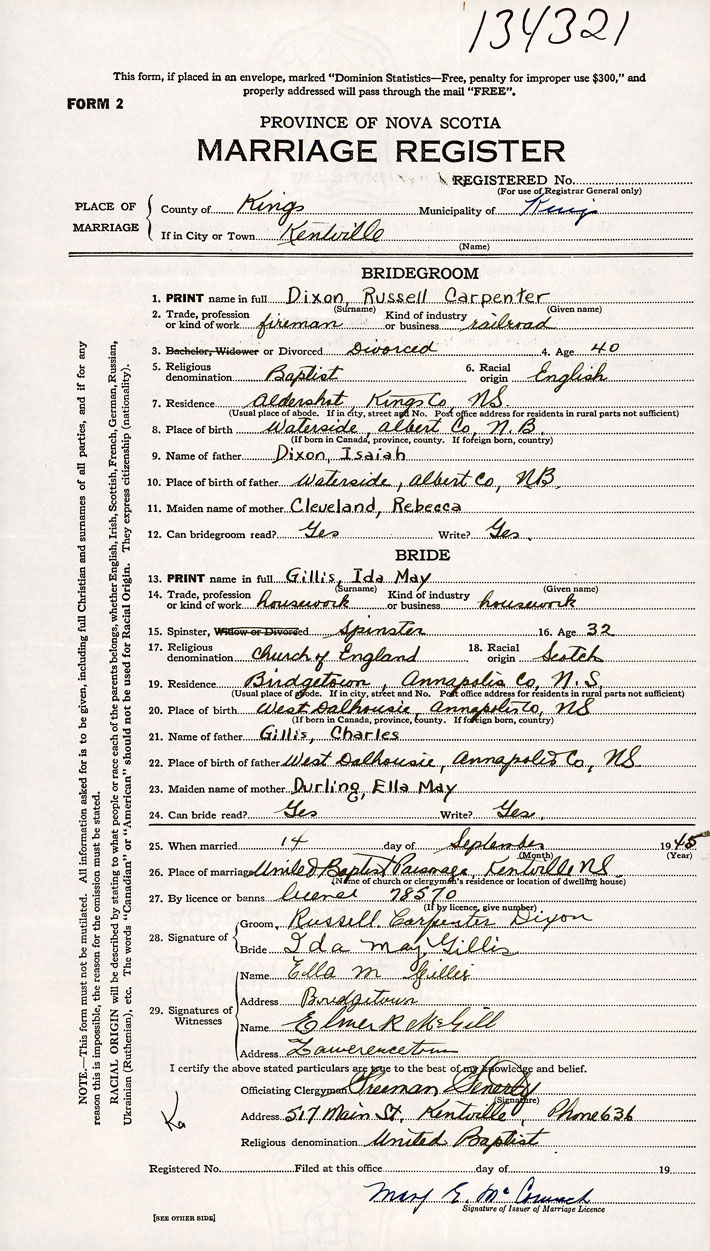 134321
This form, if placed in an envelope, marked "Dominion Statistics—Free, penalty for improper use $300," and
properly addressed will pass through the mail "FREE".
FORM 2
PROVINCE OF NOVA SCOTIA
MARRIAGE REGISTER
REGISTERED No.
(For use of Registrar General only)
PLACE OF MARRIAGE
County of Kings Municipality of Kings
If in City or Town Kentville
(Name)
BRIDEGROOM
1. PRINT name in full Dixon, Russell Carpenter
(Surname) (Given name)
2. Trade, profession or kind of work fireman Kind of industry or business railroad
3. Bachelor, Widower or Divorced Divorced 4. Age 40
5. Religious denomination Baptist 6. Racial origin English
7. Residence Aldershot, Kings Co, NS
(Usual place of abode. If in city, street and No. Post office address for residents in rural parts not sufficient)
8. Place of birth Waterside, Albert Co, N.B.
(If born in Canada, province, county. If foreign born, country)
9. Name of father Dixon, Isaiah
10. Place of birth of father Waterside, Albert Co, NB.
11. Maiden name of mother Cleveland, Rebecca
12. Can bridegroom read? Yes Write? Yes.
BRIDE
13. PRINT name in full Gillis, Ida May
(Surname) (Given name)
14. Trade, profession or kind of work housework Kind of industry or business housework
15. Spinster, Widow or Divorced Spinster 16. Age 32
17. Religious denomination Church of England 18. Racial origin Scotch
19. Residence Bridgetown, Annapolis Co, N.S.
(Usual place of abode. If in city, street and No. Post office address for residents in rural parts not sufficient)
20. Place of birth West Dalhousie, Annapolis Co, NS
(If born in Canada, province, county. If foreign born, country)
21. Name of father Gillis, Charles
22. Place of birth of father West Dalhousie, Annapolis Co, NS
23. Maiden name of mother Durling, Ella May
24. Can bride read? Yes Write? Yes.
25. When married 14 day of September 1945
(Month) (Year)
26. Place of marriage United Baptist Parsonage, Kentville NS.
(Name of church or clergyman's residence or location of dwelling house)
27. By licence or banns license 78570
(If by licence, give number)
28. Signature of
Groom, Russell Carpenter Dixon
Bride Ida May Gillis
29. Signatures of Witnesses
Name Ella M Gillis
Address Bridgetown
Name Elmer R McGill
Address Lawerencetown
I certify the above stated particulars are true to the best of my knowledge and belief.
Officiating Clergyman Freeman
(Signature)
Address 517 Main St, Kentville, Phone 636
Religious denomination United Baptist
Registered No. Filed at this office day of 19
Mary E. McCormack
Signature of Issuer of Marriage Licence
[SEE OTHER SIDE]
NOTE.—This form must not be mutilated. All information asked for is to be given, including full Christian and surnames of all parties, and if for any
reason this is impossible, the reason for the omission must be stated.
RACIAL ORIGIN will be described by stating to what people or race each of the parents belongs, whether English, Irish, Scottish, French, German, Russian,
Ukrainian (Ruthenian), etc. The words "Canadian" or "American" should not be used for Racial Origin. They express citizenship (nationality).